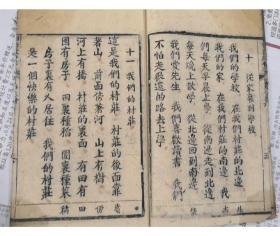 十 從家裏到學校
我們的學校 在我們村莊的北邊 我
們的家 在我們村莊的南邊 我
們每天早晨上學 從南邊走到北邊
每天晚上散學 從北邊回到南邊
我們愛先生 我們喜歡讀書 我們
不怕走很遠的路去上學
十一 我們的村莊
這是我們的村莊 村莊的後面靠
著山 前面傍著河 山上有樹
河上有橋 村莊的裏面 有田有
園有房子 田裏種稻 園裏種菜
房子裏有人居住 我們的村莊
是一個快樂的村莊